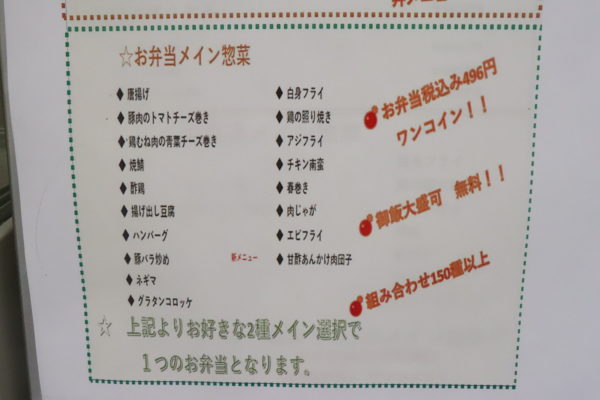 ☆お弁当メイン惣菜
◆ 唐揚げ
◆ 豚肉のトマトチーズ巻き
◆ 鶏むね肉の青菜チーズ巻き
◆ 焼鯖
◆ 酢鶏
◆ 揚げ出し豆腐
◆ ハンバーグ
◆ 豚バラ炒め
◆ ネギマ
◆ グラタンコロッケ
◆ 白身フライ
◆ 鶏の照り焼き
◆ アジフライ
◆ チキン南蛮
◆ 春巻き
◆ 肉じゃが
◆ エビフライ
新メニュー ◆ 甘酢あんかけ肉団子
お弁当税込み496円
ワンコイン！！
御飯大盛可 無料！！
組み合わせ150種以上
☆ 上記よりお好きな2種メイン選択で
１つのお弁当となります。